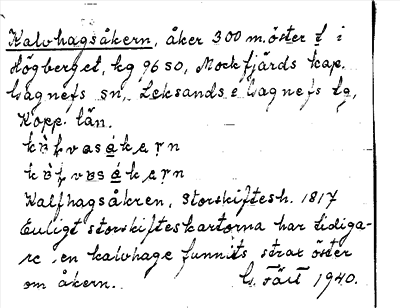 Kalvhagsåkern, åker 300 m. öster t i
Högberget, kg 9650, Mockfjärds kap.
Gagnefs sn, Leksands o Gagnefs tg,
Kopp. län.
Kalfhagsåkren, Storskiftesh. 1817
Enligt storskifteskartorna har tidiga-
re en kalvhage funnits, strax öster
om åkern. G. 1940.